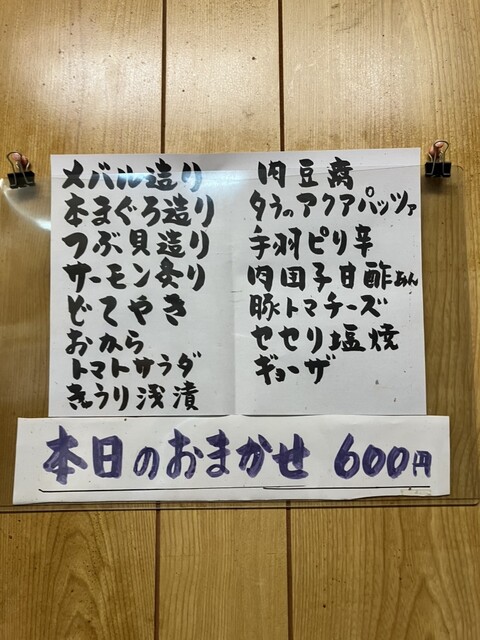 メバル造り
本まぐろ造り
つぶ貝造り
サーモン炙り
どてやき
おから
トマトサラダ
きゅうり浅漬
肉豆腐
タラのアクアパッツァ
手羽ピリ辛
肉団子甘酢あん
豚トマチーズ
セセリ塩焼
ギョーザ
本日のおまかせ 600円